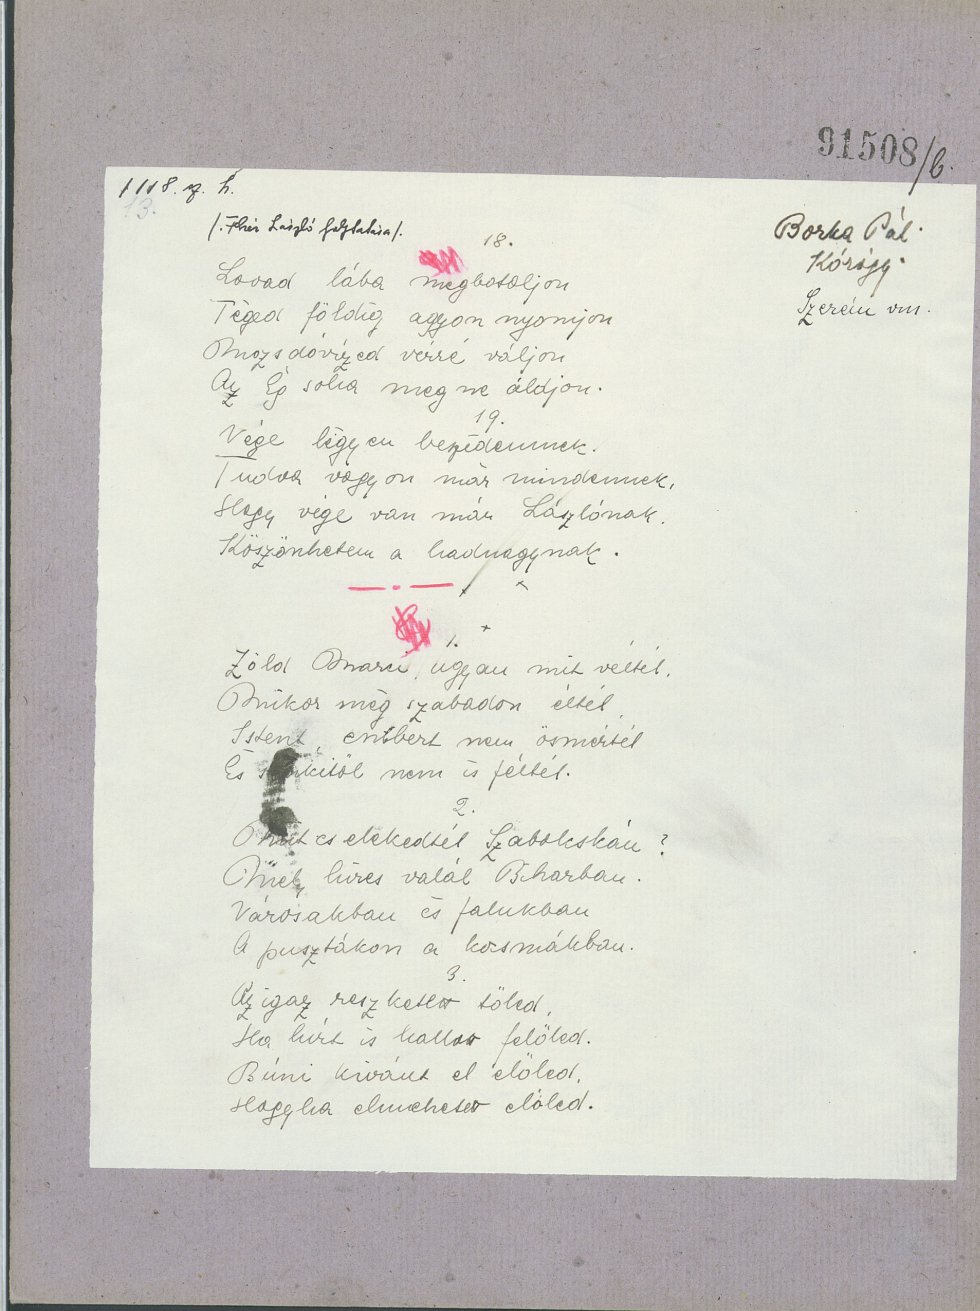 91508/6.
1118. sz. h.
13.
/. Fehér László folytatása /.
Borka Pál
Kórógy
Szerém vm.
18.
Lovad lába megbotoljon
Téged földig agyon nyomjon
Mozsdóvized vérré váljon
Az Ég soha meg ne áldjon.
19.
Vége légyen beszédemnek.
Tudva vagyon már mindennek,
Hogy vége van már Lászlónak.
Köszönhetem a hadnagynak.
1.
Zöld Marci, ugyan mit véltél,
Mikor még szabadon éltél,
Istent, embert nem ösmértél
És senkitöl nem is féltél.
2.
Mit cselekedtél Szabolcskán?
Mely hires valál Biharban.
Városakban és falukban
A pusztákon a kocsmákban.
3.
Az igaz reszketett töled,
Ha hirt is hallott felöled.
Búni kivánt el elöled,
Hogyha elmehetett elöled.